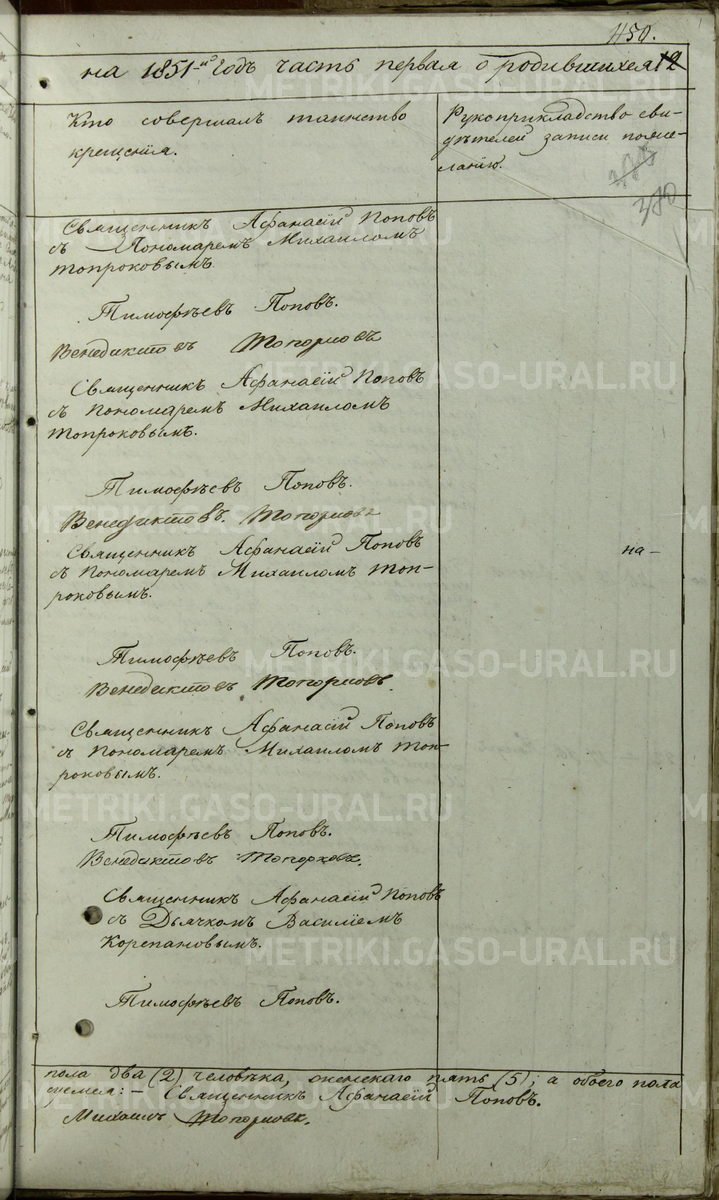 450.
на 1851-й Годъ часть первая о родившихся 12
Кто совершалъ таинство
крещенія.
Рукоприкладство сви-
дѣтелей записи по же-
ланію.
380
Священникъ Афанасій Поповъ
съ Пономаремъ Михаиломъ
Топроковымъ.
Тимофѣевъ Поповъ.
Венедиктовъ
Священникъ Афанасій Поповъ
съ Пономаремъ Михаиломъ
Топроковымъ.
Тимофѣевъ Поповъ.
Венедиктовъ.
Священникъ Афанасій Поповъ
съ Пономаремъ Михаиломъ Топ-
роковымъ.
на-
Тимофѣевъ Поповъ.
Венедиктовъ
Священникъ Афанасій Поповъ
съ Пономаремъ Михаиломъ Топ-
роковымъ.
Тимофѣевъ Поповъ.
Венедиктовъ
Священникъ Афанасій Поповъ
съ Дьячкомъ Василіемъ
Корепановымъ.
Тимофѣевъ Поповъ.
пола два (2) человѣка, женскаго пять (5); а обоего пола
семь: – Священникъ Афанасій Поповъ.
Михаилъ
METRIKI.GASO-URAL.RU